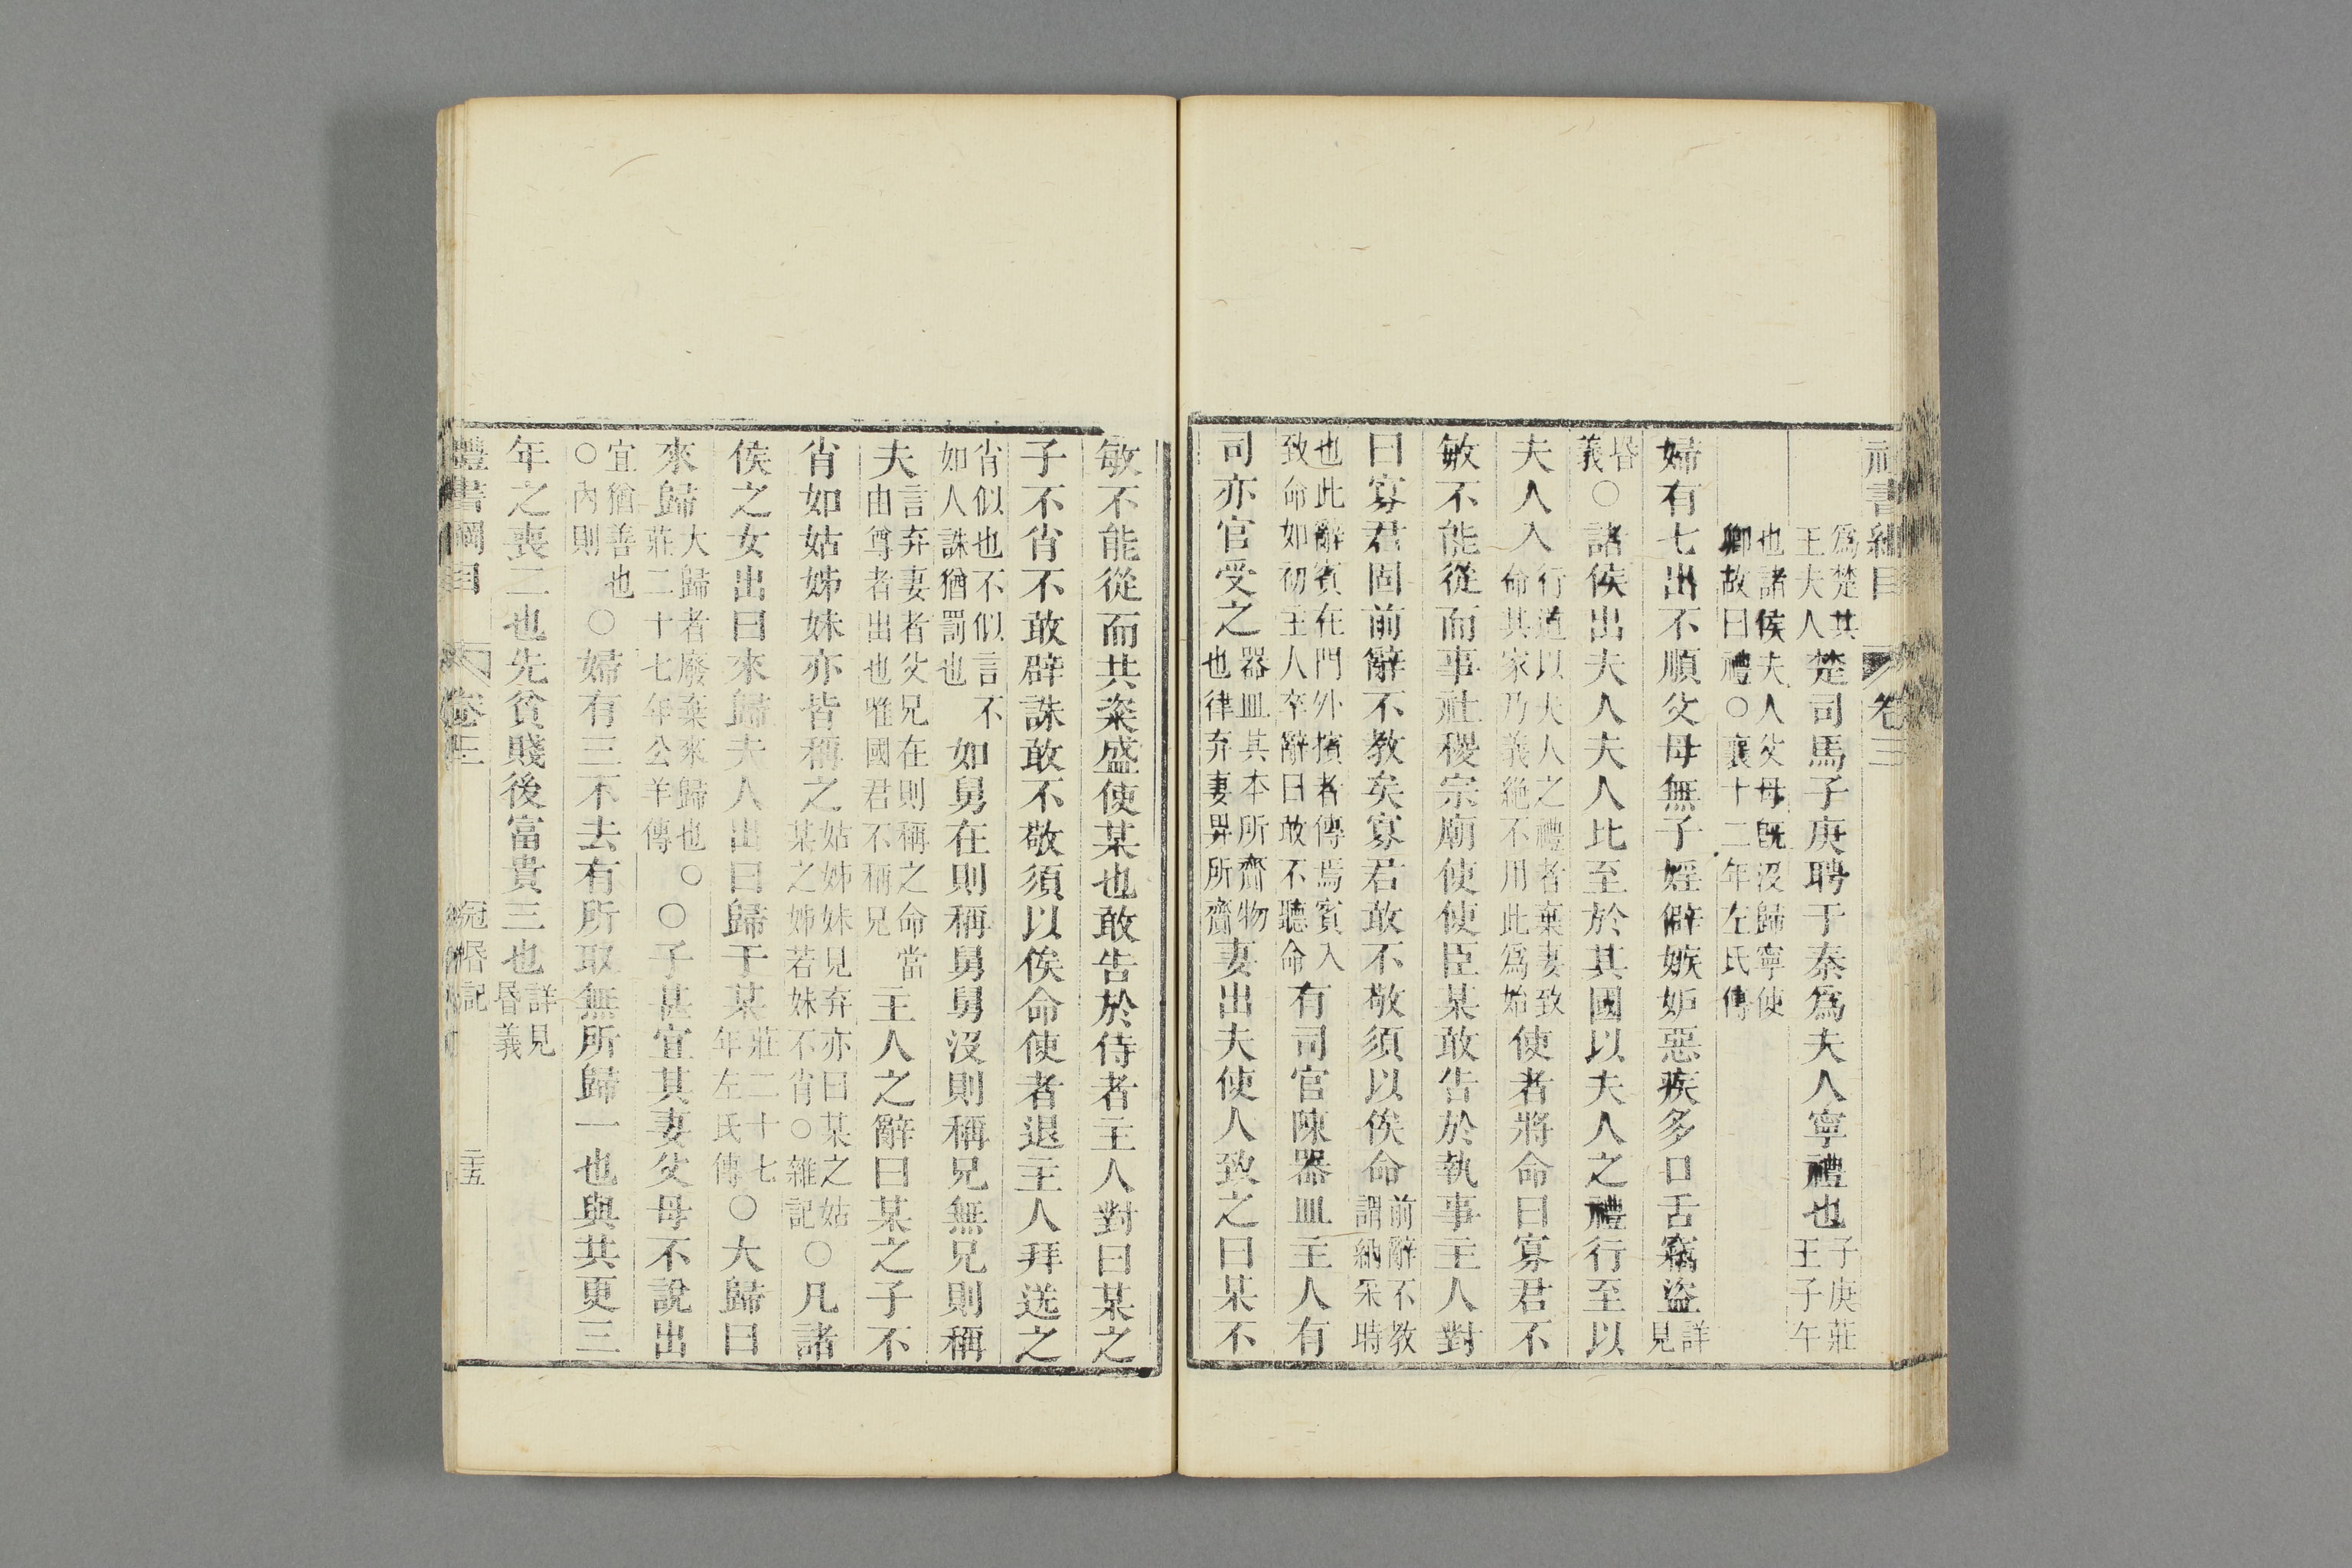 禮書綱目　卷三
爲楚其王夫人楚司馬子庚聘于秦爲夫人寧禮也子庚莊王子午
也諸侯夫人父母既沒歸寧使卿故曰禮○襄十二年左氏傳
婦有七出不順父母無子婬僻嫉妒惡疾多口舌竊盜詳見
昏義○諸侯出夫人夫人比至於其國以夫人之禮行至以
夫人入行道以夫人之禮者棄妻致命其家乃義絶不用此爲始使者將命曰寡君不
敏不能從而事社稷宗廟使使臣某敢告於執事主人對
曰寡君固前辭不教矣寡君敢不敬須以俟命前辭不教謂納采時
也此辭賓在門外擯者傳焉賓入致命如初主人卒辭曰敢不聽命有司官陳器皿主人有
司亦官受之器皿其本所齎物也律弃妻畀所齎妻出夫使人致之曰某不
敏不能從而共粢盛使某也敢告於侍者主人對曰某之
子不肖不敢辟誅敢不敬須以俟命使者退主人拜送之
肖似也不似言不如人誅猶罰也如舅在則稱舅舅沒則稱兄無兄則稱
夫言弃妻者父兄在則稱之命當由尊者出也唯國君不稱兄主人之辭曰某之子不
肖如姑姊妹亦皆稱之姑姊妹見弃亦曰某之姑某之姊若妹不肖○雜記○凡諸
侯之女出曰來歸夫人出曰歸于某莊二十七年左氏傳○大歸曰
來歸大歸者廢棄來歸也○莊二十七年公羊傳○子甚宜其妻父母不說出
宜猶善也○內則○婦有三不去有所取無所歸一也與共更三
年之喪二也先貧賤後富貴三也詳見昏義
禮書綱目　卷三　冠昏記　二五